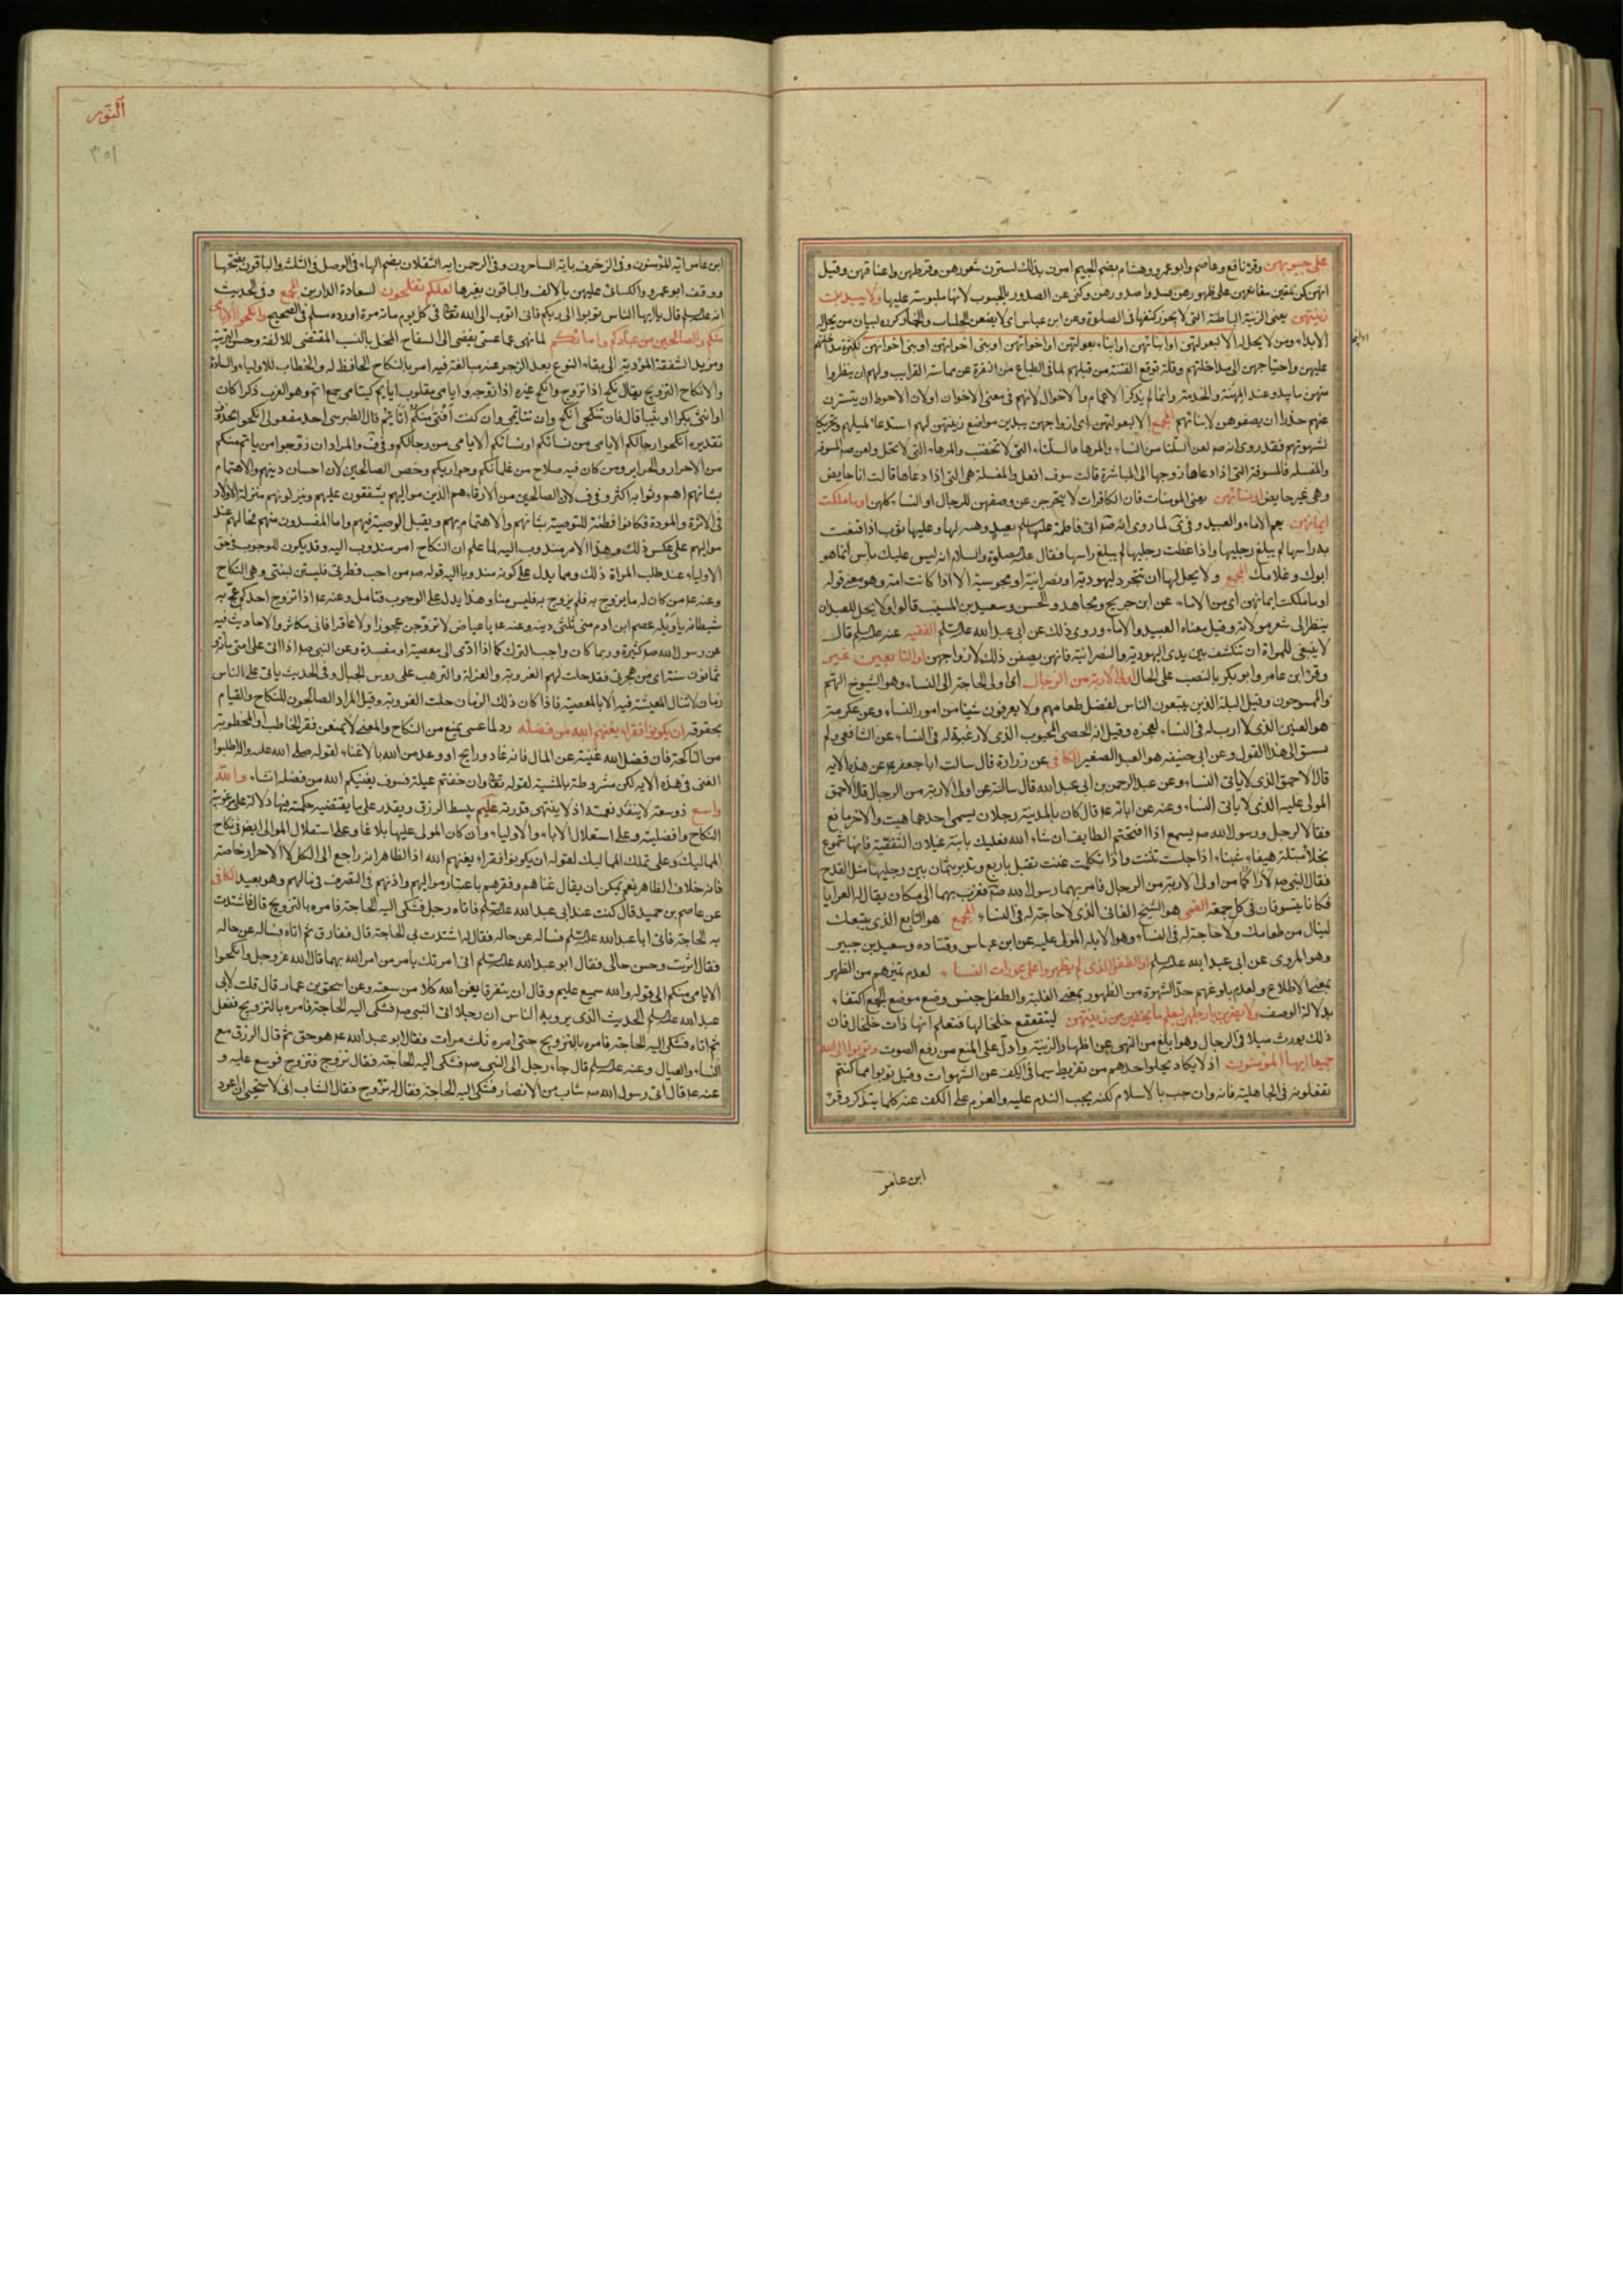 على جيوبهن وقرئ نافع وعاصم وابو عمرو وهشام بضم الجيم امرن بذلك ليسترن شعورهن وقرطهن واعناقهن وقيل
انهن كن يلقين مقانعهن على ظهورهن فيبدوا صدورهن وكنى عن الصدور بالجيوب لانها ملبوسة عليها ولا يبدين
زينتهن يعنى الزينة الباطنة التى لا يجوز كشفها فى الصلوة وعن ابن عباس اى لا يضعن الجلباب والخمار كرره لبيان من يحل له
الابداء ومن لا يحل له الا لبعولتهن او ابنائهن او ابناء بعولتهن او اخوانهن او بنى اخوانهن او بنى اخواتهن لكثرة مداخلتهم
عليهن واحتياجهن الى مداخلتهم وقلة توقع الفتنة من قبلهم لما فى الطباع من النفرة عن مماسة القرايب ولهم ان ينظروا
منهن ما يبدو عند المهنة والخدمة وانما لم يذكر الاعمام والاخوال لانهم فى معنى الاخوان او لان الاحوط ان يتسترن
عنهم حذرا ان يصفوهن لابنائهم المجمع الا لبعولتهن اى ازواجهن يبدين مواضع زينتهن لهم استدعاء لميلهم وتحريكا
لشهوتهم فقد روى انه صم لعن السلتا من النساء والمرها فالسلتاء التى لا تختضب والمرهاء التى لا تكتحل ولعن صم المسوفة
والمفسلة فالمسوفة التى اذا دعاها زوجها الى المباشرة قالت سوف افعل والمفسلة هى التى اذا دعاها قالت انا حايض
وهى غير حايض او نسائهن يعنى المومنات فان الكافرات لا يتحرجن عن وصفهن للرجال او النساء كلهن او ما ملكت
ايمانهن يعم الاماء والعبيد وفى لما روى انه صم اتى فاطمة عليها سلم بعبد وهبه لها وعليها ثوب اذا قنعت
به راسها لم يبلغ رجليها واذا غطت رجليها لم يبلغ راسها فقال عليه الصلوة والسلام انه ليس عليك بأس انما هو
ابوك وغلامك المجمع ولا يحل لها ان تتجرد ليهودية او نصرانية او مجوسية الا اذا كانت امة وهو معنى قوله
او ما ملكت ايمانهن اى من الاماء عن ابن جريج ومجاهد والحسن وسعيد بن المسيب قالوا ولا يحل للعبد ان
ينظر الى شعر مولاته وقيل معناه العبيد والاماء وروى ذلك عن ابى عبد الله عليه السلم الفقيه عنه عليه السلم قال
لا ينبغى للمراة ان تنكشف بين يدى اليهودية والنصرانية فانهن يصفن ذلك لازواجهن او التابعين غير
وقرئ ابن عامر وابو بكر بالنصب على الحال اولى الاربة من الرجال اى اولى الحاجة الى النساء وهم الشيوخ الهم
والممسوحون وقيل البله الذين يتبعون الناس لفضل طعامهم ولا يعرفون شيئا من امور النساء وعن عكرمة
هو العنين الذى لا ارب له فى النساء لعجزه وقيل انه الخصى المجبوب الذى لا رغبة له فى النساء عن الشافعى ولم
يسبق الى هذا القول وعن ابى حنيفة هو العبد الصغير الكافى عن زرارة قال سالت ابا جعفر عم عن هذه الاية
قال الاحمق الذى لا ياتى النساء وعن عبد الرحمن بن ابى عبد الله قال سالته عن اولى الاربة من الرجال قال الاحمق
المولى عليه الذى لا ياتى النساء وعنه عن ابائه عم قال كان بالمدينة رجلان يسمى احدهما هيت والاخر مانع
فقالا لرجل ورسول الله صم يسمع اذا افتتحتم الطايف ان شاء الله فعليك بابنة غيلان الثقفية فانها شموع
نجلاء مبتلة هيفاء شنباء اذا جلست تثنت واذا تكلمت غنت تقبل باربع وتدبر بثمان بين رجليها مثل القدح
فقال النبى صم لا اراكما من اولى الاربة من الرجال فامر بهما رسول الله صم فغرب بهما الى مكان يقال له العرايا
فكانا يتسوقان فى كل جمعة القمى هو الشيخ الفانى الذى لا حاجة له فى النساء المجمع هو التابع الذى يتبعك
لينال من طعامك ولا حاجة له فى النساء وهو الابله المولى عليه عن ابن عباس وقتاده وسعيد بن جبير
وهو المروى عن ابى عبد الله عليه السلم او الطفل الذى لم يظهروا على عورات النساء لعدم تميزهم من الظهر
بمعنى الاطلاع ولعدم بلوغهم حد الشهوة من الظهور بمعنى الغلبة والطفل جنس وضع موضع الجمع اكتفاء
بدلالة الوصف ولا يضربن بارجلهن ليعلم ما يخفين من زينتهن ليتقعقع خلخالها فتعلم انها ذات خلخال فان
ذلك يورث ميلا فى الرجال وهو ابلغ من النهى عن اظهار الزينة وادل على المنع من رفع الصوت وتوبوا الى الله
جميعا ايها المؤمنون اذ لا يكاد يخلو احدهم من تفريط سيما فى الكف عن الشهوات وقيل توبوا مما كنتم
تفعلونه فى الجاهلية فانه وان جب بالاسلام لكنه يجب الندم عليه والعزم على الكف عنه كلما يتذكر وقرئ
ابن عامر
النور
٣٥١
ابن عامر ايه المؤمنون وفى الزخرف يا ايه الساحرون وفى الرحمن ايه الثقلان بضم الهاء فى الوصل فى الثلثة والباقون بفتحها
ووقف ابو عمرو والكسائى عليهن بالالف والباقون بغيرها لعلكم تفلحون لسعادة الدارين المجمع وفى الحديث
انه عليه السلم قال يا ايها الناس توبوا الى ربكم فانى اتوب الى الله تعالى فى كل يوم مائة مرة اورده مسلم فى الصحيح وانكحوا الايامى
منكم والصالحين من عبادكم وامائكم لما نهى عما عسى يفضى الى السفاح المخل بالنسب المقتضى للالفة وحسن التربية
ومزيد الشفقة المؤدية الى بقاء النوع بعد الزجر عنه مبالغة فيه امر بالنكاح الحافظ له والخطاب للاولياء والسادة
والانكاح التزويج يقال نكح اذا تزوج وانكح غيره اذا زوجه وايامى مقلوب ايايم كيتامى جمع ايم وهو العزب ذكرا كان
او انثى بكرا او ثيبا قال فان تنكحى انكح وان تتايمى وان كنت افتى منكم اتايم قال الطبرسى احد مفعولى انكحوا محذوف
تقديره انكحوا رجالكم الايامى من نسائكم او نسائكم الايامى من رجالكم وفى ف والمراد ان زوجوا من تايم منكم
من الاحرار والحراير ومن كان فيه صلاح من غلمانكم وجواريكم وخص الصالحين لان احصان دينهم والاهتمام
بشانهم اهم وثوابه اكثر وفى ف لان الصالحين من الارقاء هم الذين مواليهم يشفقون عليهم وينزلونهم منزلة الاولاد
فى الاثرة والمودة فكانوا مظنة للتوصية بشانهم والاهتمام بهم وبقبل الوصية فيهم واما المفسدون منهم فحالهم عند
مواليهم على عكس ذلك وهذا الامر مندوب اليه لما علم ان النكاح امر مندوب اليه وقد يكون للوجوب فى حق
الاولياء عند طلب المراة ذلك ومما يدل على كونه مندوبا اليه قوله صم من احب فطرتى فليستن بسنتى وهى النكاح
وعنه عم من كان له ما يزوج به فلم يزوج به فليس منا وهذا يدل على الوجوب فتامل وعنه عم اذا تزوج احدكم عج به
شيطانه يا ويله عصم ابن ادم منى ثلثى دينه وعنه عم يا عياض لا تزوجن عجوزا ولا عاقرا فانى مكاثر والاحاديث فيه
عن رسول الله صم كثيرة وربما كان واجب الترك كما اذا ادى الى معصية او مفسدة وعن النبى صم اذا اتى على امتى مائة و
ثمانون سنة اى من هجرتى فقد حلت لهم العزوبة والعزلة والترهب على روس الجبال وفى الحديث ياتى على الناس
زمان لا تنال المعيشة فيه الا بالمعصية فاذا كان ذلك الزمان حلت العزوبة وقيل المراد الصالحون للنكاح والقيام
بحقوقه ان يكونوا فقراء يغنهم الله من فضله رد لما عسى يمنع من النكاح والمعنى لا يمنعن فقر الخاطب او المخطوبة
من المناكحة فان فضل الله غنية عن المال فانه غاد ورايح او وعد من الله بالاغناء لقوله صلى الله عليه واله اطلبوا
الغنى فى هذه الاية لكن مشروطة بالمشية لقوله تعالى وان خفتم عيلة فسوف يغنيكم الله من فضله انشاء والله
واسع ذو سعة لا ينفد نعمته اذ لا ينتهى قدرته عليم يبسط الرزق ويقدر على ما يقتضيه حكمته فيها دلالة على عزوبة
النكاح وافضليته وعلى استقلال الاباء والاولياء وان كان المولى عليها بالغا وعلى استقلال الموالى ايضا فى نكاح
المماليك وعلى تملك المماليك لقوله ان يكونوا فقراء يغنهم الله اذ الظاهر انه راجع الى الكل لا الاحرار خاصة
فانه خلاف الظاهر نعم يمكن ان يقال غناهم وفقرهم باعتبار مواليهم واذنهم فى التصرف فى مالهم وهو بعيد الكافى
عن عاصم بن حميد قال كنت عند ابى عبد الله عليه السلم فاتاه رجل فشكى اليه الحاجة فامره بالتزويج قال فاشتدت
به الحاجة فاتى ابا عبد الله عليه السلم فساله عن حاله فقال له اشتدت بى الحاجة قال ففارق ثم اتاه فساله عن حاله
فقال اثريت وحسن حالى فقال ابو عبد الله عليه السلم انى امرتك بامرين امر الله بهما قال الله عز وجل وانكحوا
الايامى منكم الى قوله والله سميع عليم وقال ان يتفرقا يغن الله كلا من سعته وعن اسحق بن عمار قال قلت لابى
عبد الله عليه السلم الحديث الذى يرويه الناس ان رجلا اتى النبى صم فشكى اليه الحاجة فامره بالتزويج ففعل
ثم اتاه فشكى اليه الحاجة فامره بالتزويج حتى امره ثلث مرات فقال ابو عبد الله عم هو حق ثم قال الرزق مع
النساء والعيال وعنه عليه السلم قال جاء رجل الى النبى صم فشكى اليه الحاجة فقال تزوج فتزوج فوسع عليه و
عنه عم قال اتى رسول الله صم شاب من الانصار فشكى اليه الحاجة فقال له تزوج فقال الشاب انى لاستحيى ان اعود